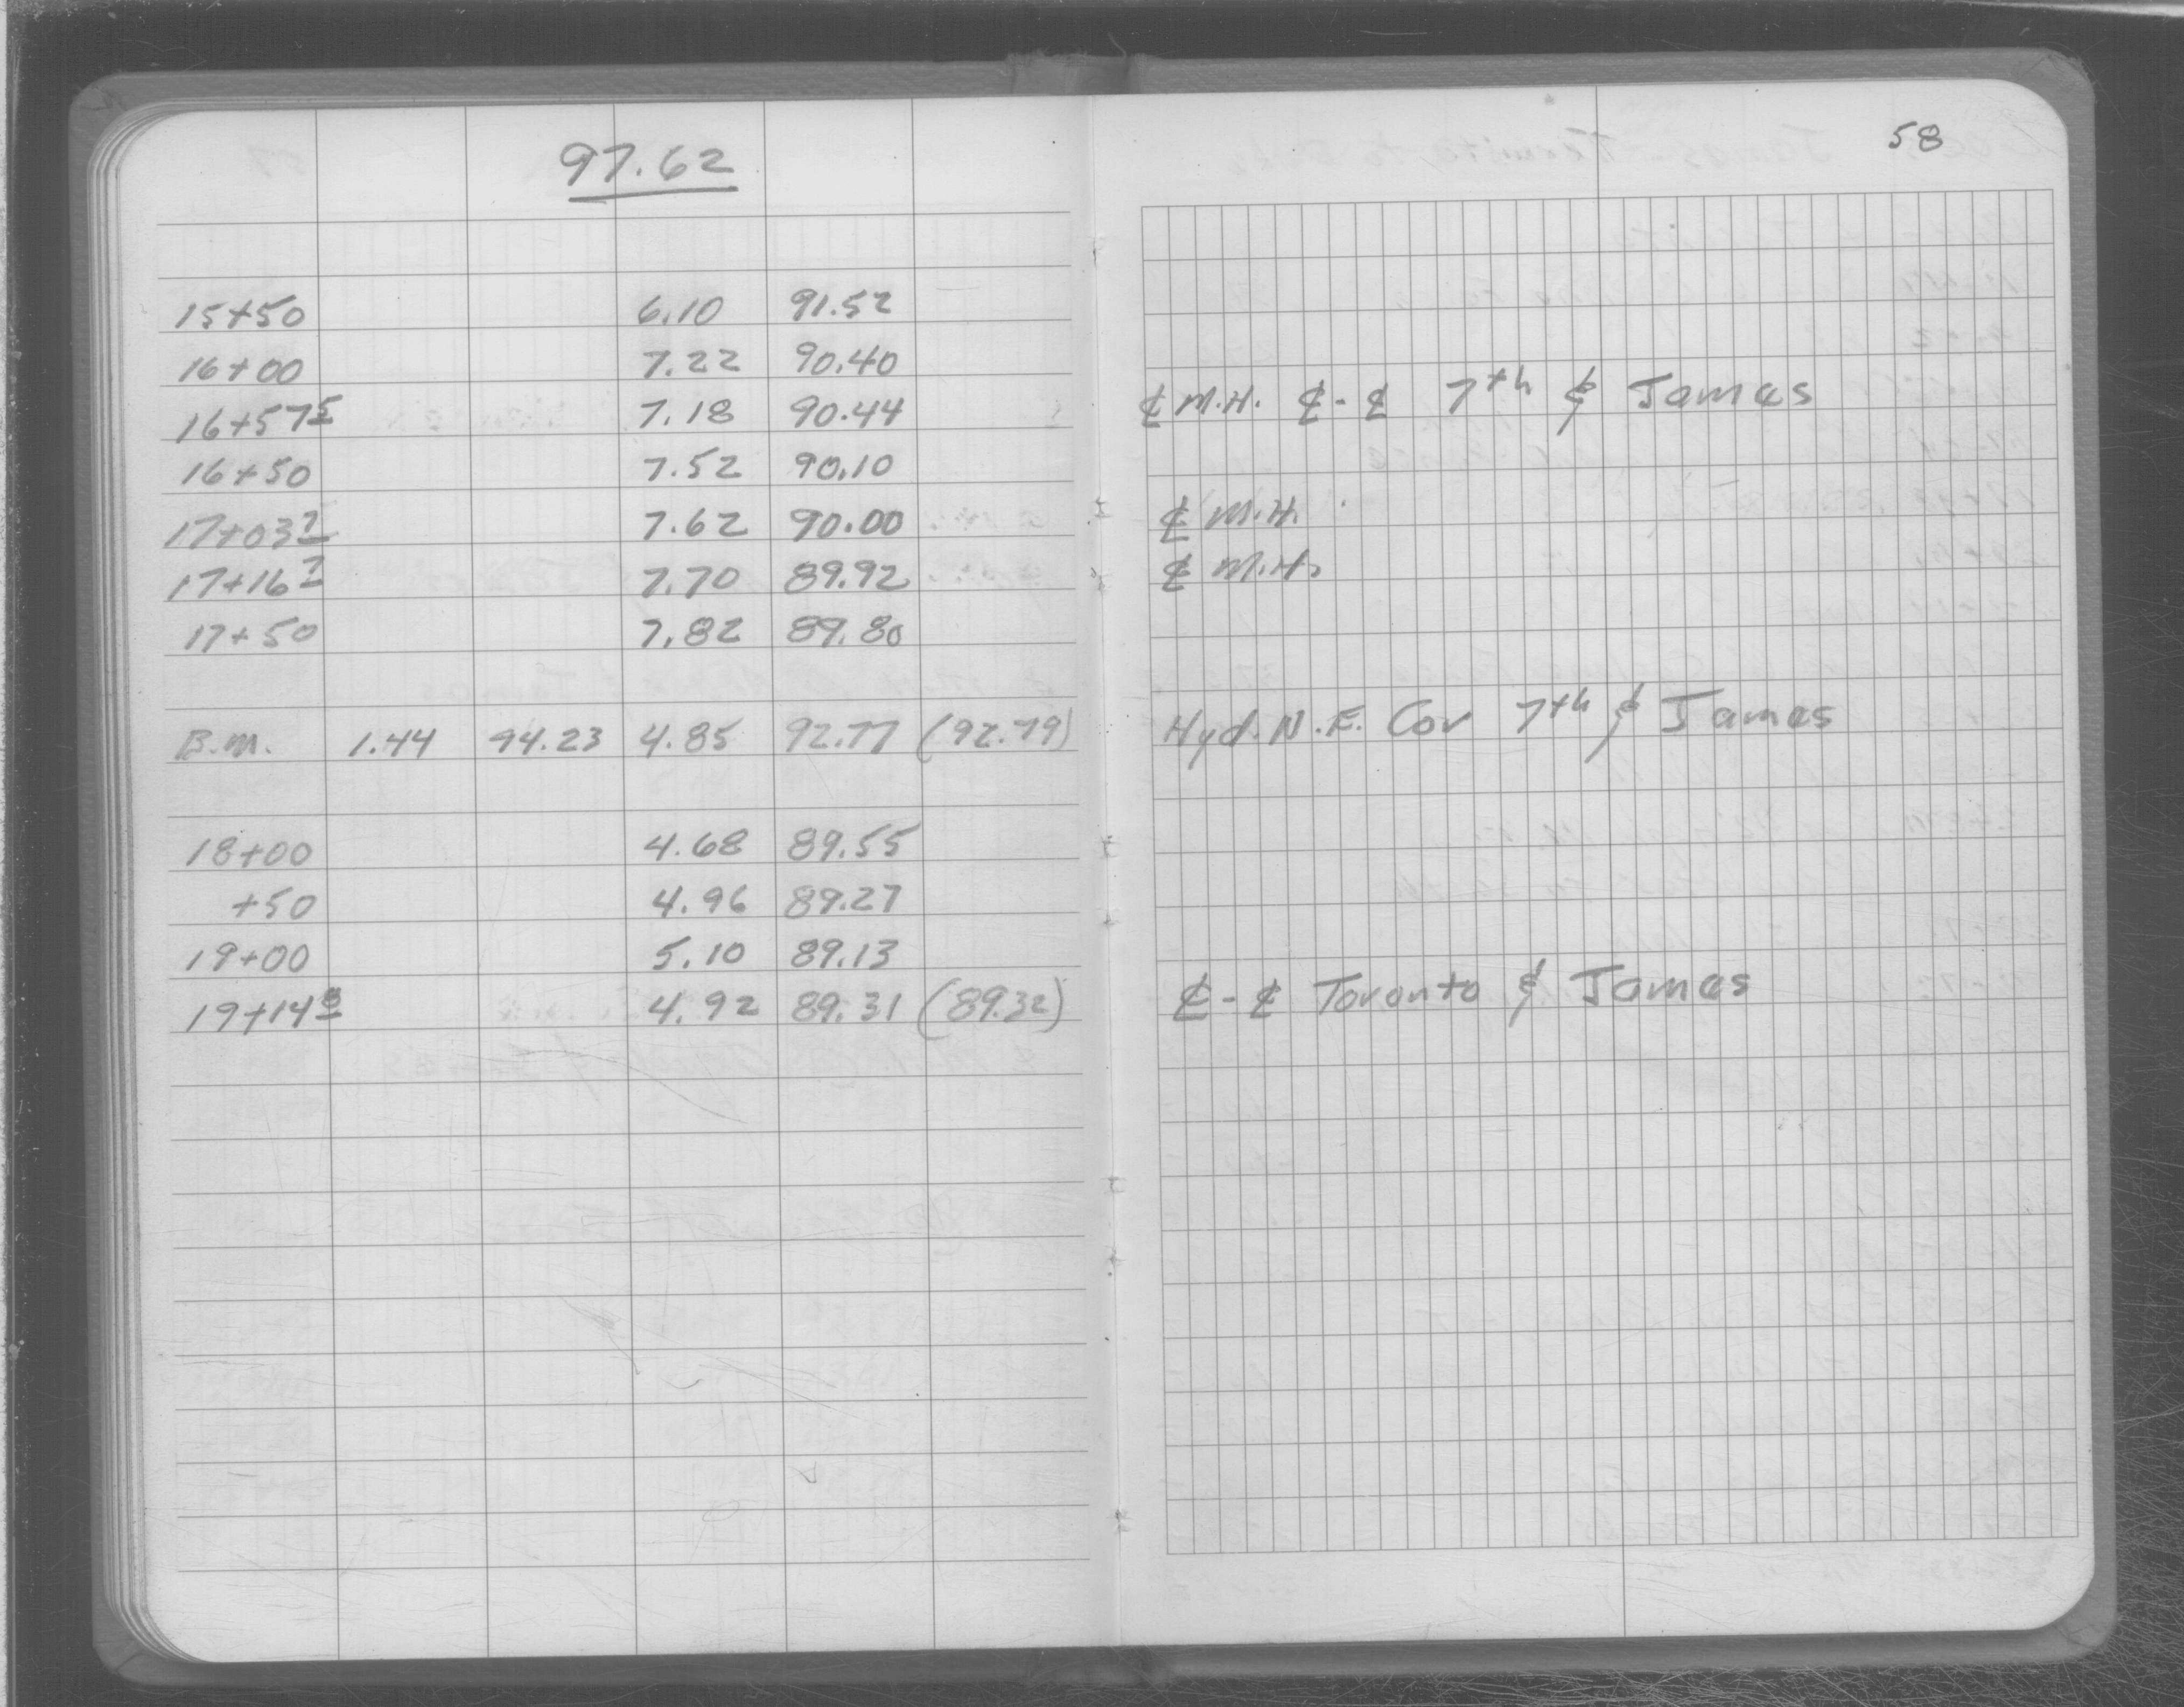 97.62
58
15+50 6.10 91.52
16+00 7.22 90.40
16+57⁵ 7.18 90.44 ℄ M.H. ℄-℄ 7th & James
16+50 7.52 90.10
17+03⁷ 7.62 90.00 ℄ M.H.
17+16⁷ 7.70 89.92 ℄ M.H.
17+50 7.82 89.80
B.M. 1.44 94.23 4.85 92.77 (92.79) Hyd. N.E. Cor 7th & James
18+00 4.68 89.55
+50 4.96 89.27
19+00 5.10 89.13
19+14⁸ 4.92 89.31 (89.32) ℄-℄ Toronto & James